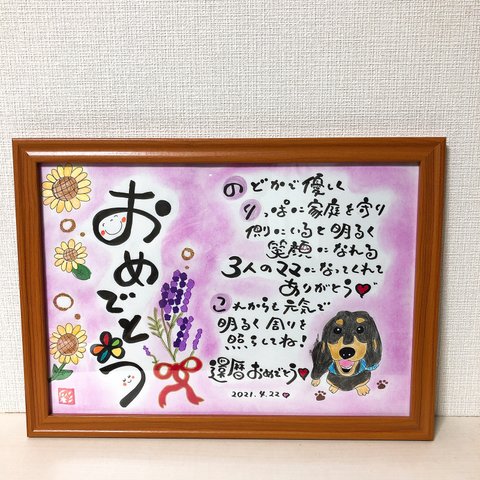 おめでとう
のどかで優しく
りっぱに家庭を守り
側にいると明るく
笑顔になれる
3人のママになってくれて
ありがとう
これからも元気で
明るく周りを
照らしてね!
還暦おめでとう
2021.4.22